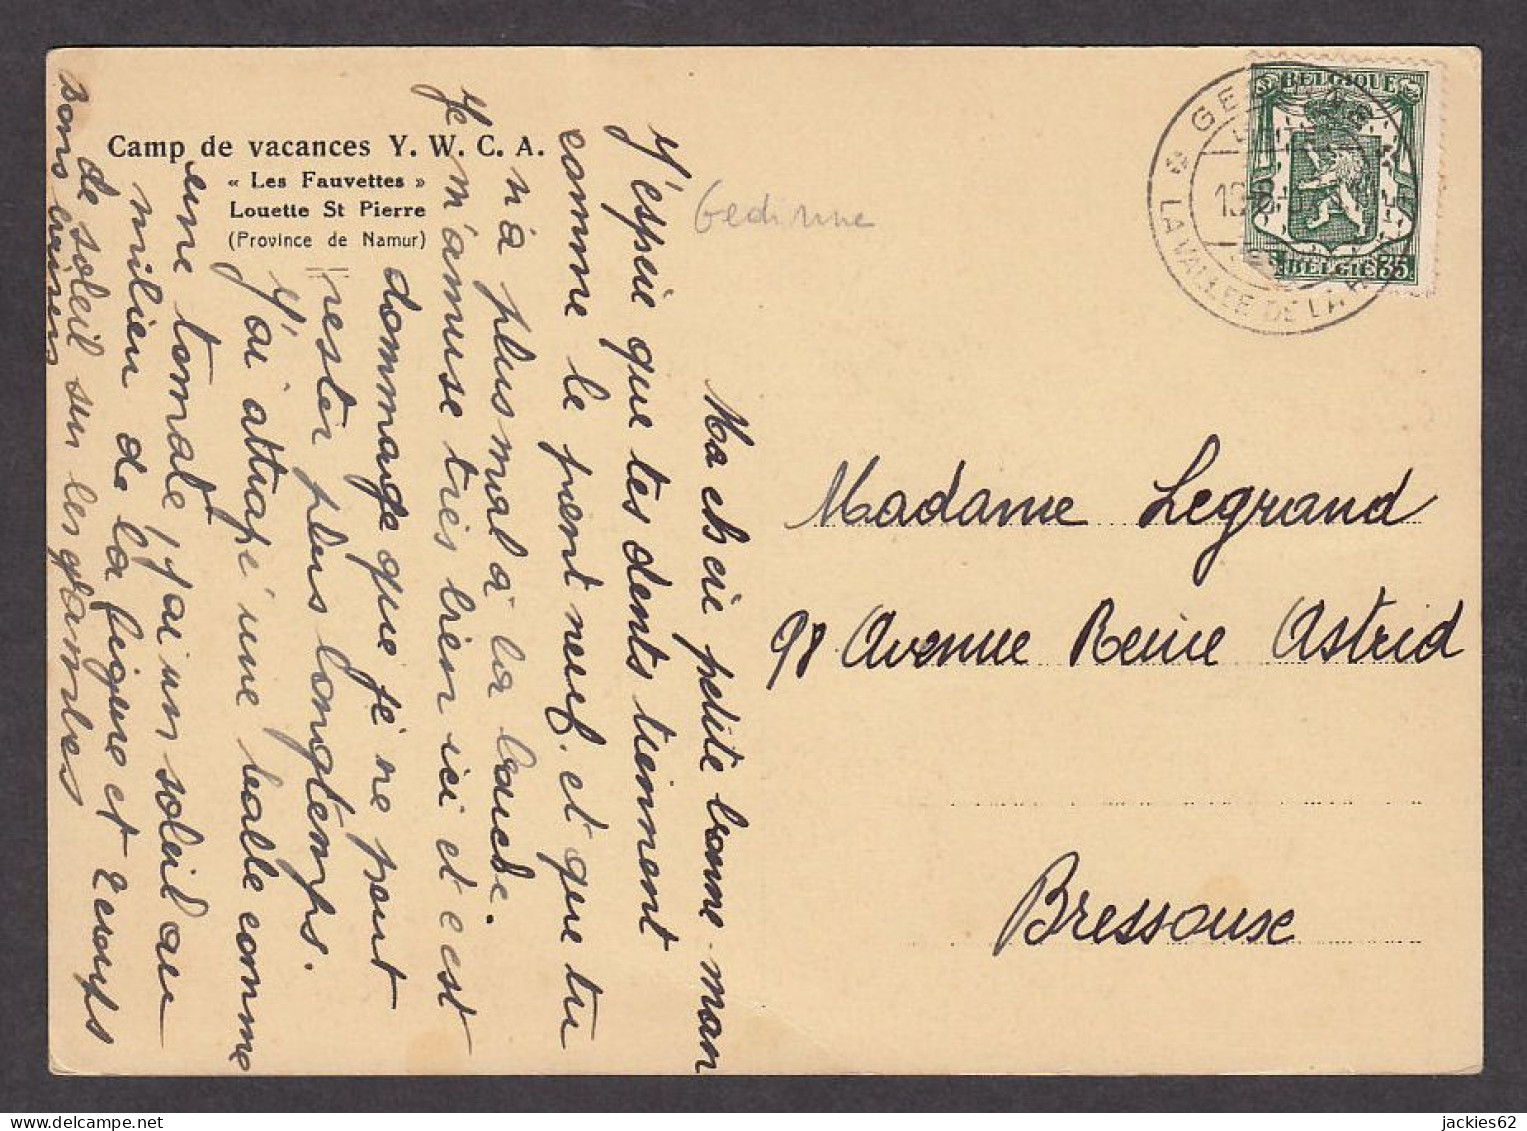 Camp de vacances Y. W. C. A.
« Les Fauvettes »
Louette St Pierre
(Province de Namur)
Gedinne
BELGIQUE
BELGIË 35
GEDINNE
LA VALLEE DE LA
Ma chérie petite bonne-man
J'espèie que tes dents tiennent
comme le pont neuf. et que tu
n'a plus mal à la bouche.
Je m'amuse tres bien ici et c'est
dommage que je ne peut
rester plus longtemps.
J'ai attrapé une balle comme
une tomate, j'ai un soleil au
milieu de la figure et 2 coups
de soleil sur les jambes
sans
Madame Legrand
98 Avenue Reine Astrid
Bressouxe
jackies62